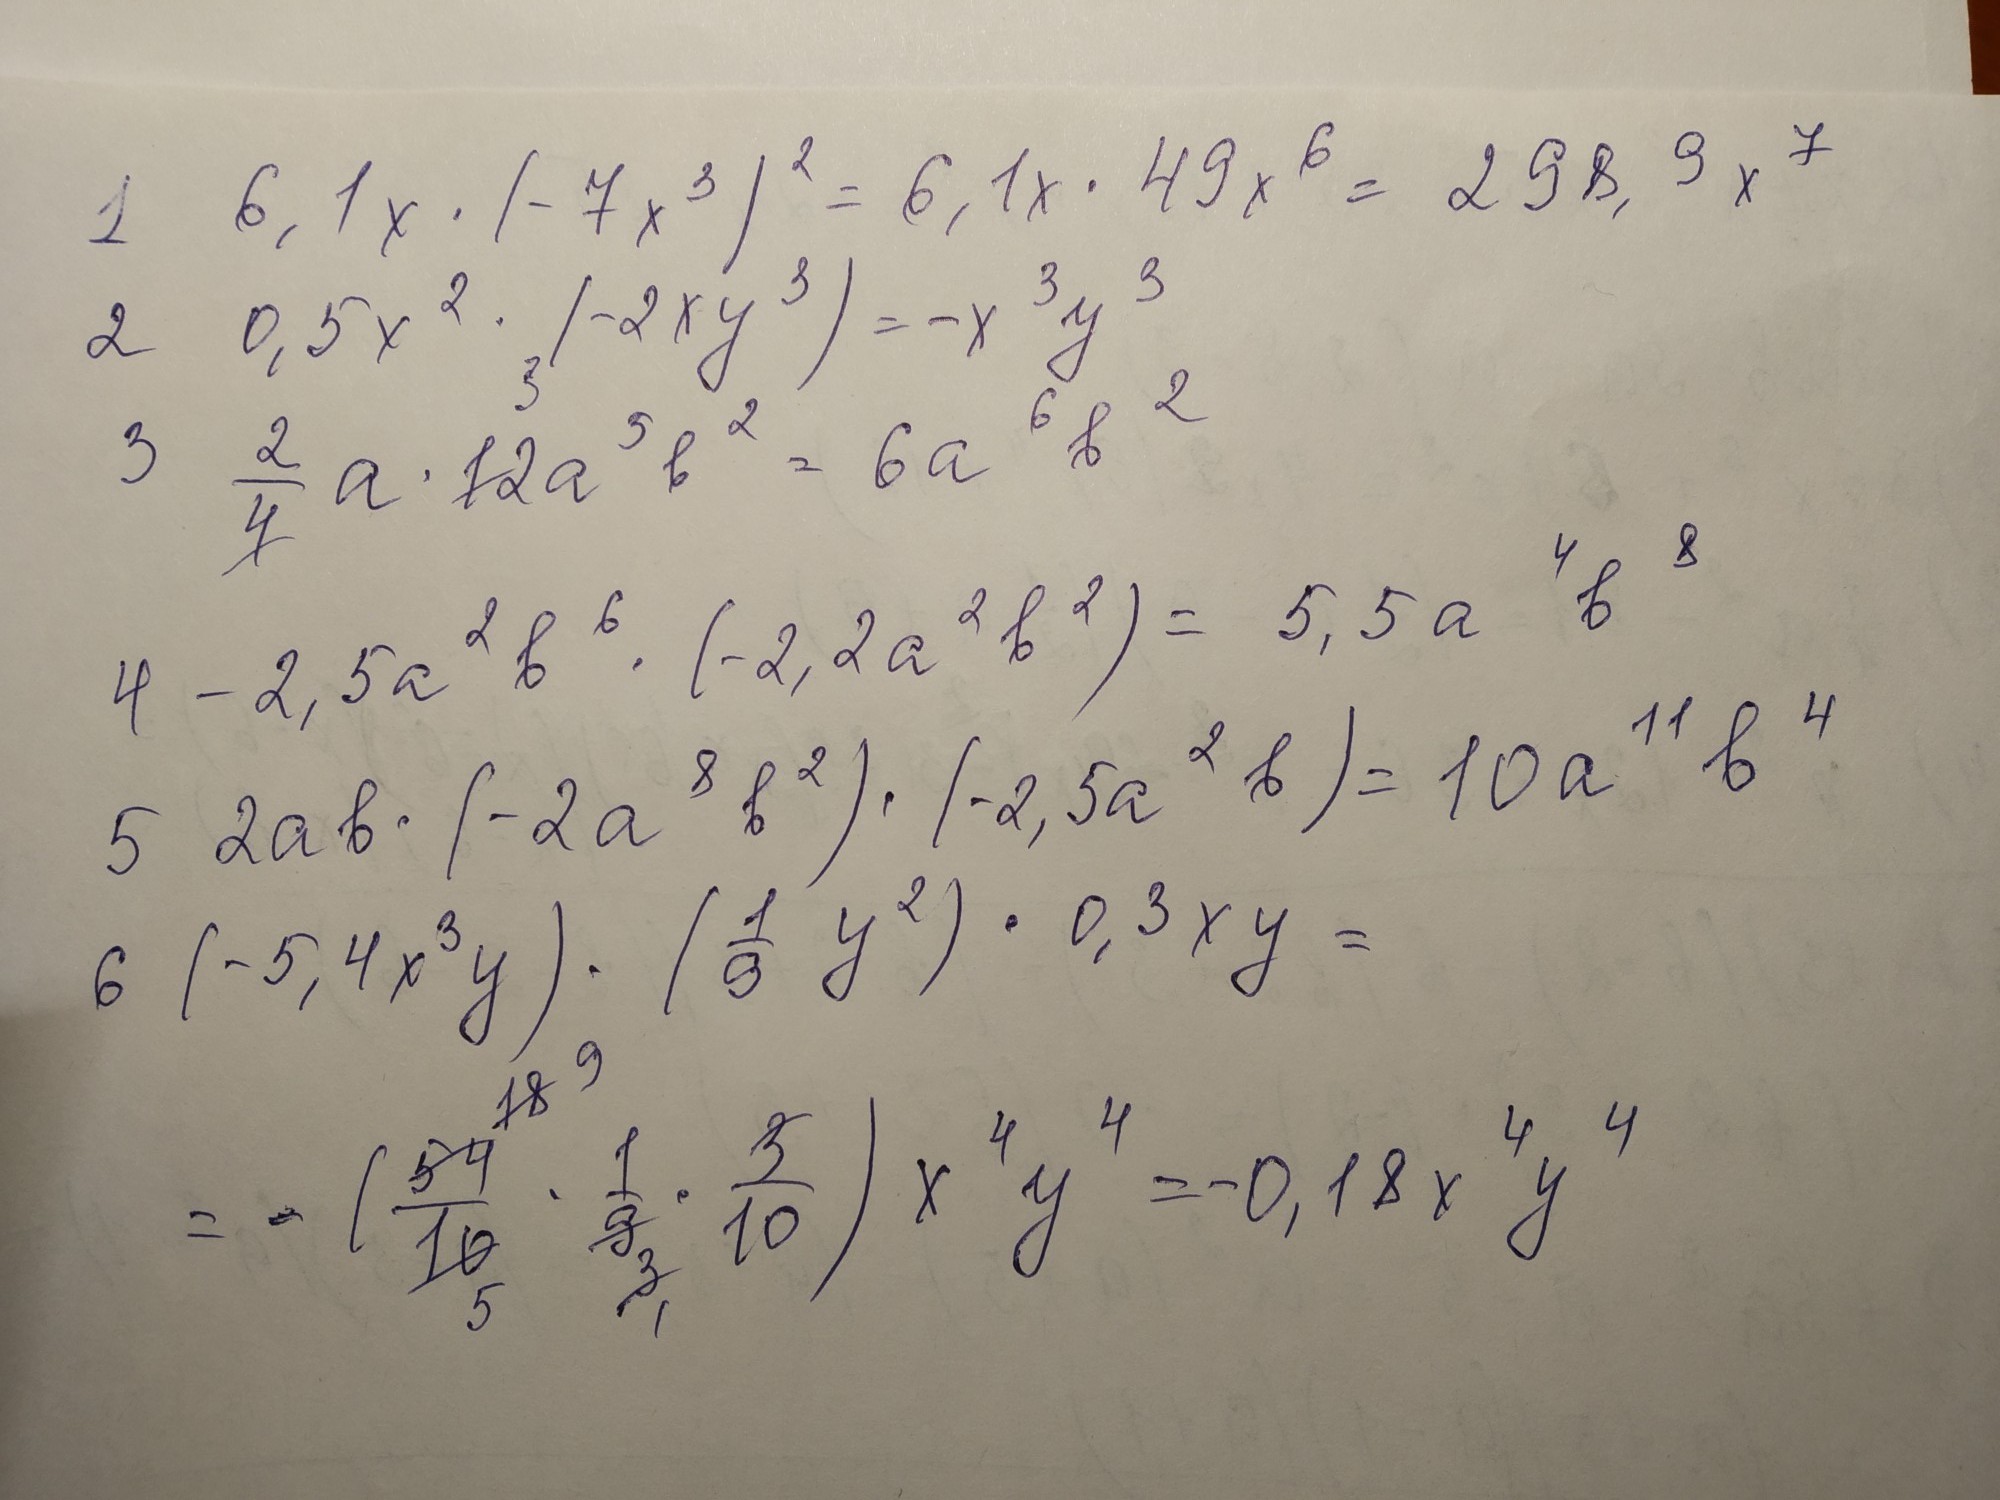 1 6,1x · (-7x³)² = 6,1x · 49x⁶ = 298,9x⁷
2 0,5x² · (-2xy³) = -x³y³
3 2/4 a · 12³a⁵b² = 6a⁶b²
4 -2,5a²b⁶ · (-2,2a²b²) = 5,5a⁴b⁸
5 2ab · (-2a⁸b²) · (-2,5a²b) = 10a¹¹b⁴
6 (-5,4x³y) · (1/9 y²) · 0,3xy =
18 9
= - (54/10 · 1/9 · 3/10) x⁴y⁴ = -0,18x⁴y⁴
5 3 1